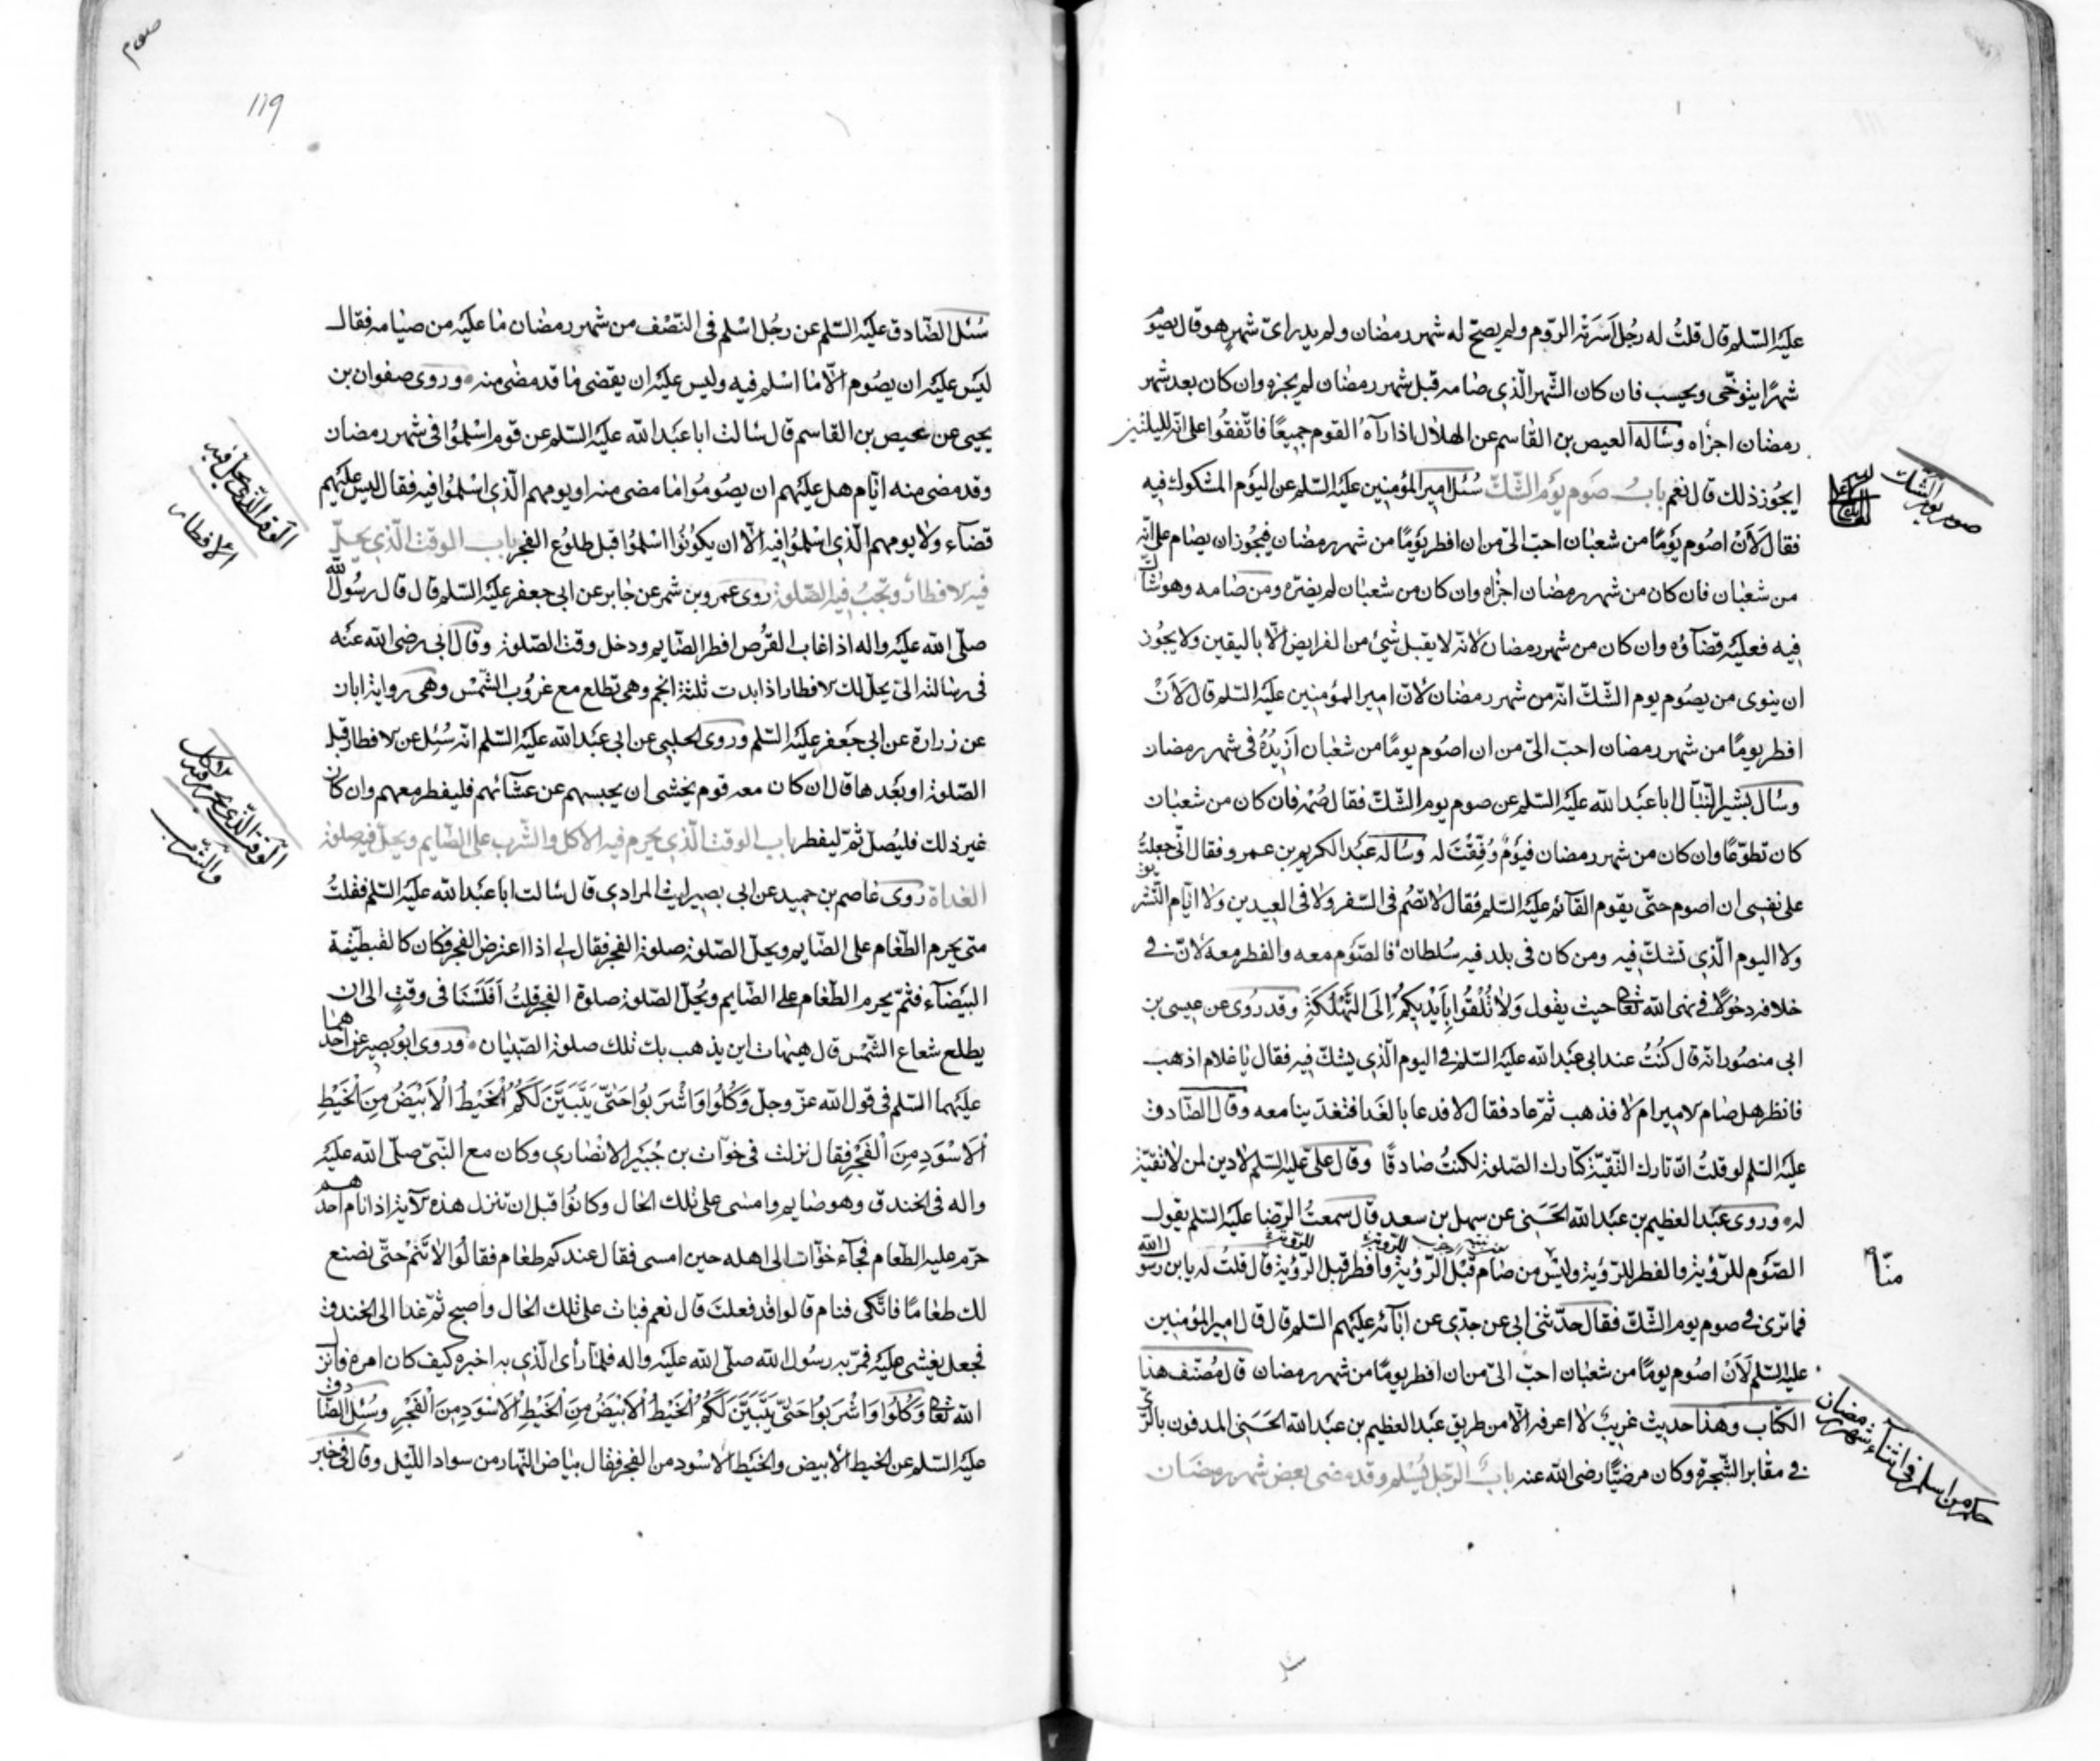 عليه السّلم قال قلتُ له رجُل اَسَرَته الرّوم ولم يصحّ له شهر رمضان ولم يدر اىّ شهرٍ هو قال يصوم
شهرًا يتوخّى ويحسب فان كان الشّهر الّذى صامه قبل شهر رمضان لم يجزه وان كان بعد شهر
رمضان اجزاه وسأله العيص بن القاسم عن الهلال اذا رآه القوم جميعًا فاتّفقُوا على انّه لليلتين
ايجُوز ذلك قال نعم بابُ صَوم يَوم الشّكّ سُئل امير المؤمنين عليه السّلم عن اليَوم المشكوك فيه
فقال لَاَنْ اصُوم يَومًا من شعبان احبّ الىّ من ان افطر يَومًا من شهر رمضان فيجُوز ان يصام على انّه
من شعبان فان كان من شهر رمضان اجزاه وان كان من شعبان لم يضرّه ومن صامه وهو شاكّ
فيه فعليه قضاؤه وان كان من شهر رمضان لانّه لا يقبل شئ من الفرايض الّا باليقين ولا يجُوز
ان ينوى من يصُوم يوم الشّكّ انّه من شهر رمضان لانّ امير المؤمنين عليه السّلم قال لَاَنْ
افطر يومًا من شهر رمضان احبّ الىّ من ان اصُوم يومًا من شعبان اَزيدُهُ فى شهر رمضان
وسأل بشير النّبّال ابا عَبد الله عليه السّلم عن صوم يوم الشّكّ فقال صُمه فان كان من شعبان
كان تطوّعًا وان كان من شهر رمضان فيَومٌ وُفّقتَ له وسأله عبد الكريم بن عمرو فقال انّى جعلتُ
على نفسى ان اصوم حتّى يقوم القائم عليه السّلم فقال لا تصُم فى السّفر ولا فى العيدين ولا ايّام التّشريق
ولا اليوم الّذى تشكّ فيه ومن كان فى بلد فيه سُلطان فالصّوم معه والفطر معه لانّ فى
خلافه دخولًا فى نهى الله تعالى حيث يقول وَلَا تُلْقُوا بِأَيْدِيكُمْ اِلَى التَّهْلُكَةِ وقد رُوى عن عيسى بن
ابى منصُور انّه قال كُنتُ عند ابى عَبد الله عليه السّلم فى اليوم الّذى يشكّ فيه فقال يا غلام اذهب
فانظر هل صام الامير ام لا فذهب ثمّ عاد فقال لا فدعا بالغدا فتغدّينا معه وقال الصّادق
عليه السّلم لو قلتُ انّ تارك التّقيّة كتارك الصّلوة لكنتُ صادقًا وقال علىّ عليه السّلم لا دين لمن لا تقيّة
له وروى عَبد العظيم بن عَبد الله الحَسَنى عن سهل بن سعد قال سمعتُ الرّضا عليه السّلم يقول
الصّوم للرّؤية والفطر للرّؤية وليس منّا من صام قبْل الرّؤية للرّؤية وافطر قبل الرّؤية للرّؤية قال قلتُ له يا بن رسُول الله
فما ترى فى صوم يوم الشّكّ فقال حدّثنى ابى عن جدّى عن ابآئه عليهم السّلم قال قال امير المؤمنين
عليه السّلم لَاَنْ اصُوم يومًا من شعبان احبّ الىّ من ان افطر يومًا من شهر رمضان قال مُصنّف هذا
الكتاب وهذا حديث غريبٌ لا اعرفه الّا من طريق عَبد العظيم بن عَبد الله الحَسَنى المدفون بالرّى
فى مقابر الشّجرة وكان مرضيًّا رضى الله عنه بابُ الرّجل يُسْلِم وقد مضى بعض شهر رمضان
صوم يوم الشّك
منّا
حكم من اسلم فى اثنآء شهر رمضان
صوم
119
سُئل الصّادق عليه السّلم عن رجُل اسْلم فى النّصْف من شهر رمضان ما عليه من صيامه فقال
ليس عليه ان يصُوم الّا ما اسْلم فيه وليس عليه ان يقضى ما قد مضى منه وروى صفوان بن
يحيى عن عيص بن القاسم قال سألت ابا عَبد الله عليه السّلم عن قوم اسْلموُا فى شهر رمضان
وقد مضى منه ايّام هل عليهم ان يصُومُوا ما مضى منه او يومهم الّذى اسْلموُا فيه فقال ليس عليهم
قضآء ولا يومهم الّذى اسْلموُا فيه الّا ان يكونُوا اسْلموُا قبل طلوُع الفجر باب الوقت الّذى يحلّ
فيه الافطار وتجبُ فيه الصّلوة روى عمرو بن شمر عن جابر عن ابى جعفر عليه السّلم قال قال رسُول الله
صلّى الله عليه واله اذا غاب القُرص افطر الصّايم ودخل وقت الصّلوة وقال ابى رضى الله عنه
فى رسالته الىّ يحلّ لك الافطار اذا بدت ثلثة انجم وهى تطلع مع غروُب الشّمْس وهى رواية ابان
عن زرارة عن ابى جعفر عليه السّلم وروى الحلبى عن ابى عَبد الله عليه السّلم انّه سُئل عن الافطار قبل
الصّلوة او بَعْدها قال ان كان معه قوم يخشى ان يحبسهم عن عشآئهم فليفطر معهم وان كان
غير ذلك فليُصلّ ثمّ ليفطر باب الوقت الّذى يحرم فيه الاكل والشّرب على الصّايم ويحلّ فيه صلوة
الغداة روى عاصم بن حميد عن ابى بصير ليث المرادى قال سألت ابا عَبد الله عليه السّلم فقلتُ
متى يحرم الطّعام على الصّايم ويحلّ الصّلوة صلوة الفجر فقال لى اذا اعترض الفجر فكان كالقبطيّة
البيضآء فثمّ يحرم الطّعام على الصّايم ويُحلّ الصّلوة صلوة الفجر قلتُ اَفَلَسْنَا فى وقتٍ الى ان
يطلع شعاع الشّمْس قال هيهات اين يذهب بك تلك صلوة الصّبيان وروى ابوُ بصير عن احدهما
عليهما السّلم فى قول الله عزّ وجلّ وَكُلُوا وَاشْرَبُوا حَتّىٰ يَتَبَيَّنَ لَكُمُ الْخَيْطُ الْاَبْيَضُ مِنَ الْخَيْطِ
الْاَسْوَدِ مِنَ الْفَجْرِ فقال نزلت فى خوّات بن جُبَير الانصارى وكان مع النّبىّ صلّى الله عليه
واله فى الخندق وهو صايم وامسى على تلك الحال وكانُوا قبل ان تنزل هذه الآية اذا نام احدهم
حرّم عليه الطّعام فجآء خوّات الى اهله حين امسى فقال عندكم طعام فقالُوا لا تَنَمْ حتّى نصنع
لك طعامًا فاتّكى فنام قالوا قد فعلتَ قال نعم فبات على تلك الحال واصبح ثمّ غدا الى الخندق
فجعل يغشى عليه فمرّ به رسُول الله صلّى الله عليه واله فلمّا رأى الّذى به اخبره كيف كان امره فانزل
الله تعالى وَكُلُوا وَاشْرَبُوا حَتّىٰ يَتَبَيَّنَ لَكُمُ الْخَيْطُ الْاَبْيَضُ مِنَ الْخَيْطِ الْاَسْوَدِ مِنَ الْفَجْرِ وسُئِل الصّادق
عليه السّلم عن الخيط الابيض والخيط الاسْود من الفجر فقال بياض النّهار من سواد اللّيل وقال فى خبر
الوقت الّذى يحلّ فيه
الافطار
الوقت الّذى يحرم فيه الاكل
والشّرب